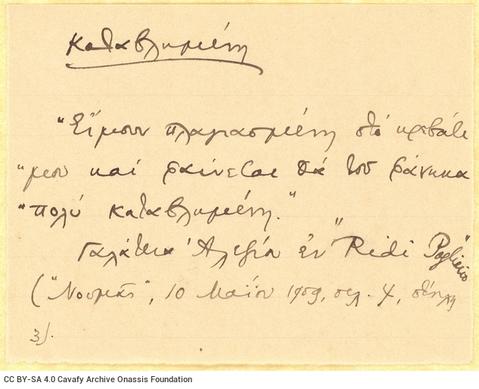 καταβλημένη
"Εἴμουν πλαγιασμένη στὸ κρεβάτι
"μου καὶ φαίνεται θὰ τοῦ φάνηκα
"πολὺ καταβλημένη."
Γαλάτεια Ἀλεξίου ἐν "Ridi Pagliacio"
("Νουμᾶς", 10 Μαΐου 1909, σελ. 4, στήλη
3).
CC BY-SA 4.0 Cavafy Archive Onassis Foundation